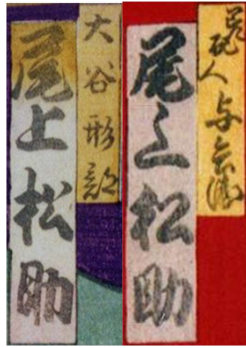 人与兵衛
尾上松助
大谷形部
尾上松助